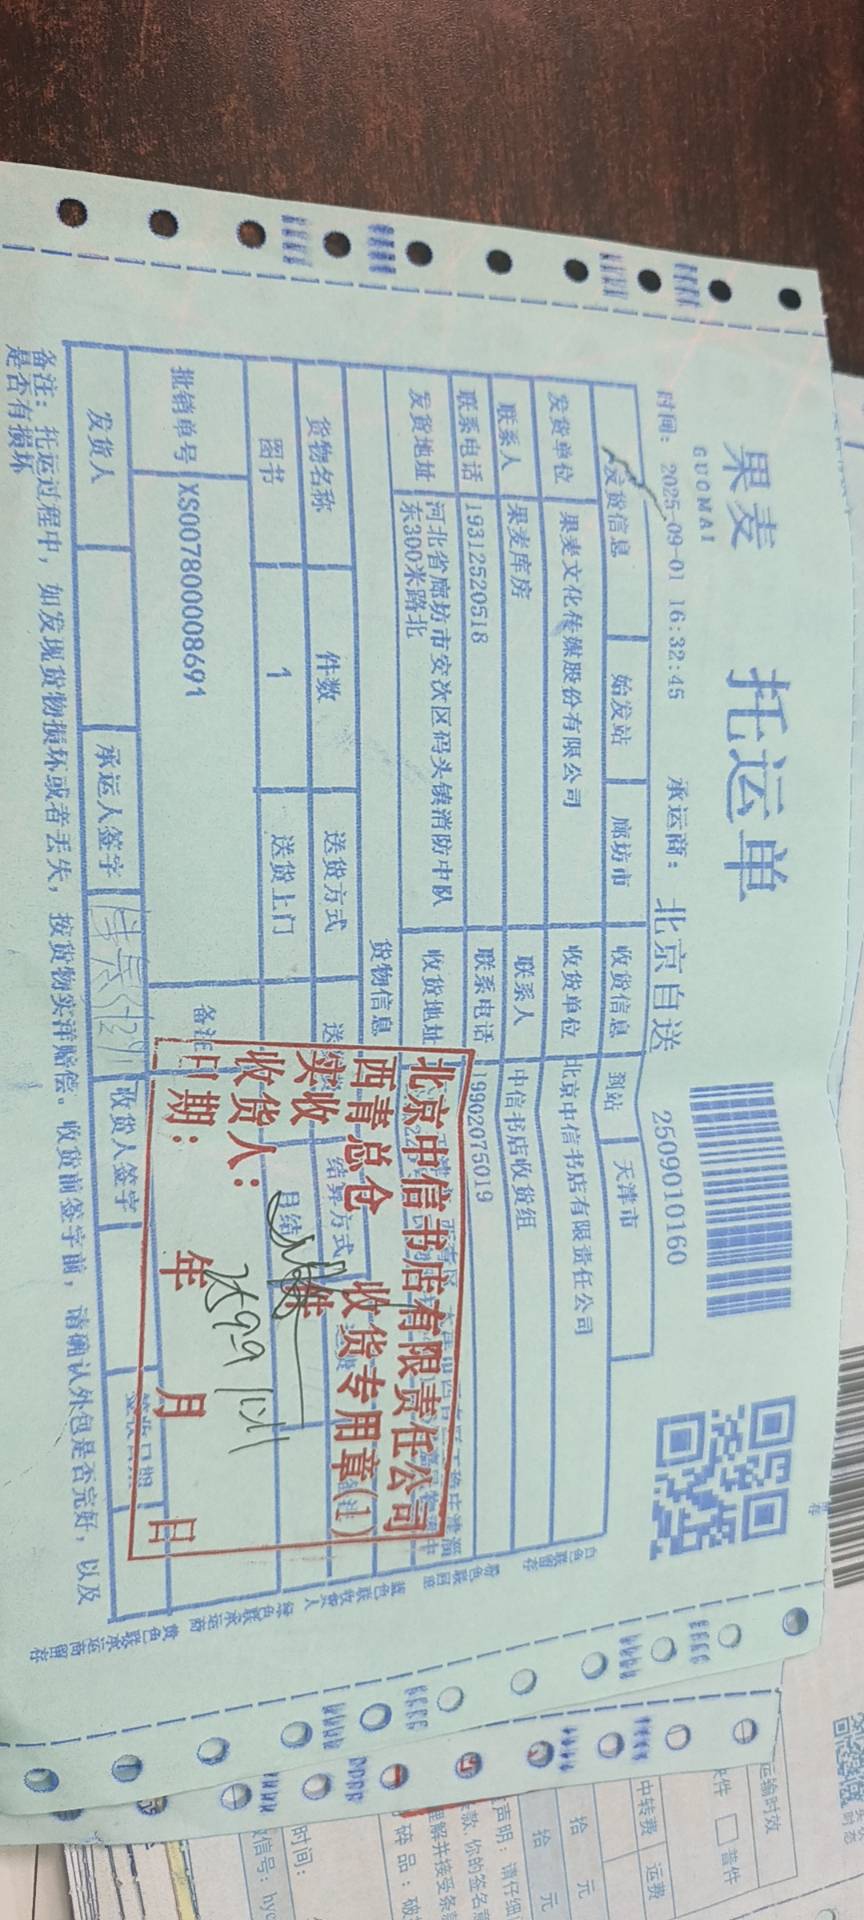 果麦
GUOMAI
托运单
时间: 2025-09-01 16:32:45
承运商: 北京自送
2509010160
发货信息 始发站 廊坊市 收货信息 到站 天津市
发货单位 果麦文化传媒股份有限公司 收货单位 北京中信书店有限责任公司
联系人 果麦库房 联系人 中信书店收货组
联系电话 19312520518 联系电话 19902075019
发货地址 河北省廊坊市安次区码头镇消防中队
东300米路北
收货地址
货物信息
货物名称 件数 送货方式 结算方式
图书 1 送货上门 月结
批销单号 XS007800008691 备注
发货人 承运人签字 收货人签字 签收日期
备注: 托运过程中, 如发现货物损坏或者丢失, 按货物实洋赔偿。收货前签字前, 请确认外包是否完好, 以及
是否有损坏
北京中信书店有限责任公司
西青总仓 收货专用章(1)
实收 件
收货人:
日期: 年 月 日
白色联留存
粉色联回单
蓝色联收货人
绿色联承运商
黄色联承运商留存
运输时效
快件 普件
中转费 运费
拾 元
拾 元
时间: